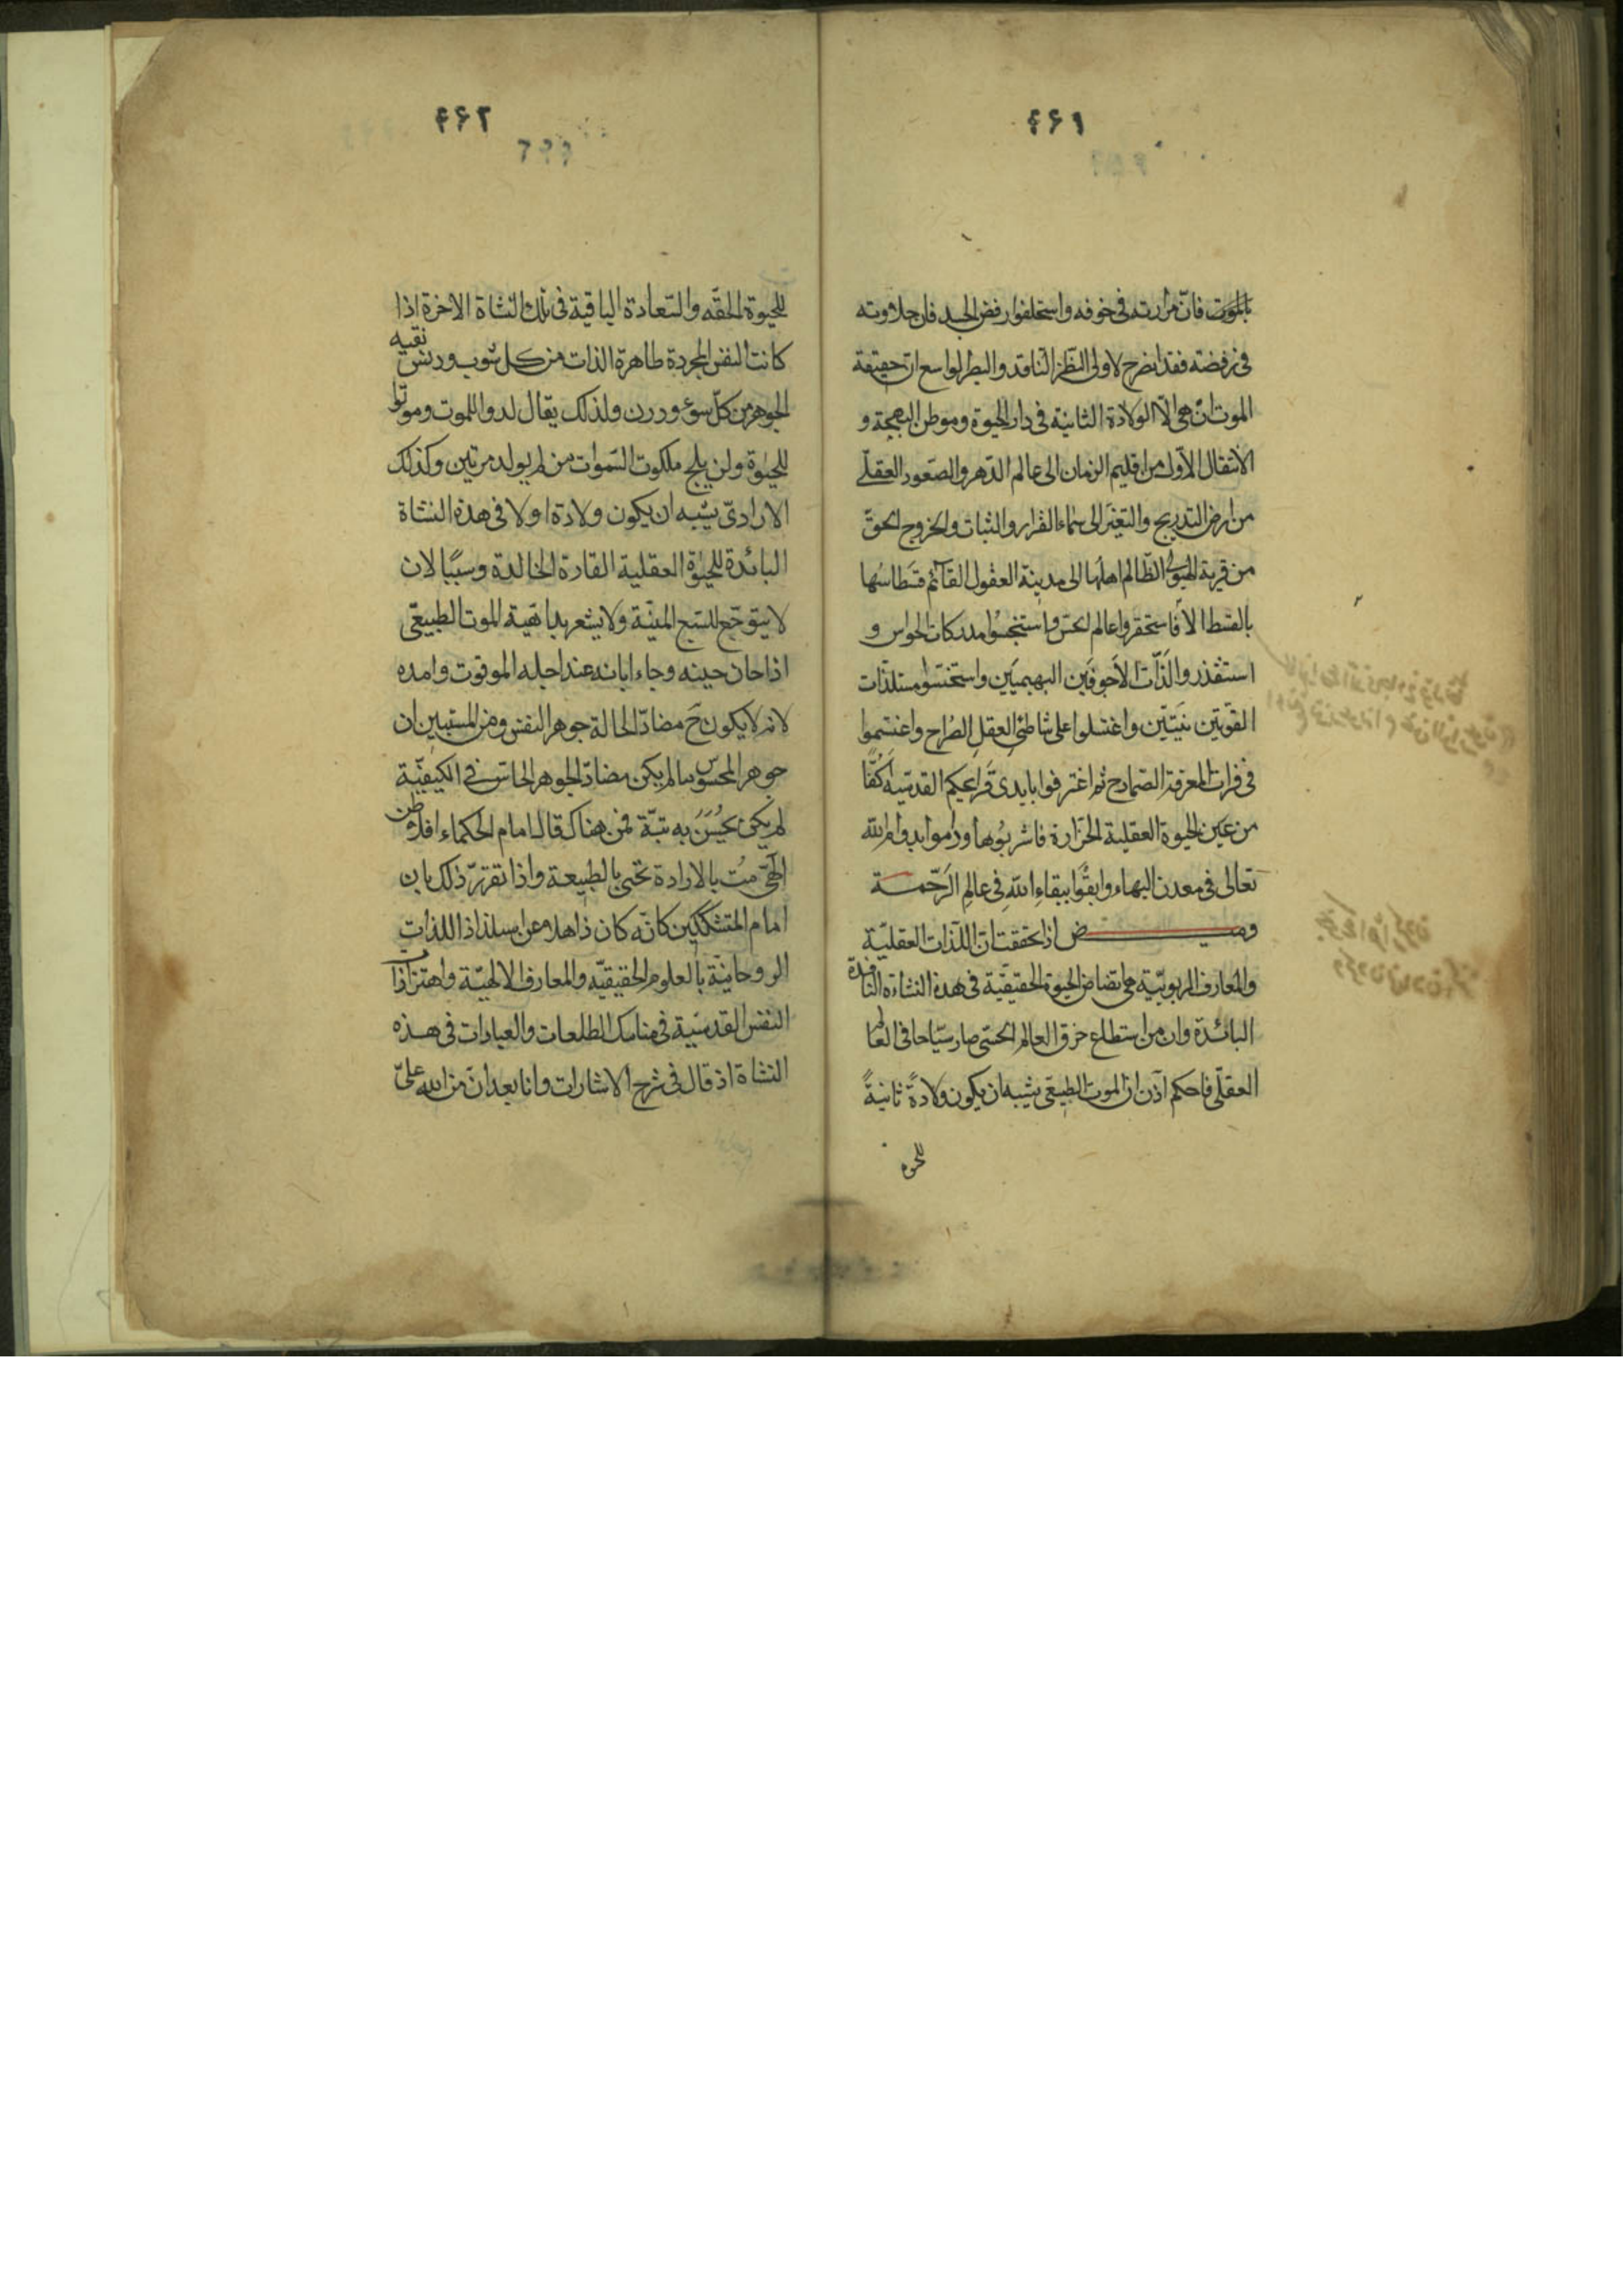 ۴۶۱
بالموت فان مرارته في خوفه واستحلفوا رفض الجسد فان حلاوته
في رفضه فقد انصرح لاولى النظر الناقد والبصر الواسع ان حقيقة
الموت ان هي الّا الولادة الثانية في دار الحيوة وموطن البهجة و
الانتقال الاول من اقليم الزمان الى عالم الدهر والصعود العقلى
من ارض التدريج والتغير الى سماء القرار والثبات والخروج الحق
من قرية الهيولى الظالم اهلها الى مدينة العقول القائم قسطاسها
بالقسط الا فاستحقروا عالم الحس واستنجسوا مدركات الحواس و
استقذروا لذّات الاجوفين البهيميين واستخسّوا مستلذات
القوتين واغتسلوا على شاطئ العقل الصراح واغتمسوا
في فرات المعرفة الصمادح ثم اغترفوا بايدى قرائحكم القدسية اكفّا
من عين الحيوة العقلية الخرارة فاشربوها وداموا بدوام الله
تعالى في معدن البهاء وابقوا ببقاء الله في عالم الرحمة
وميض اذ تحققت ان اللذات العقلية
والمعارف الربوبية هي الحيوة الحقيقية في هذه النشاءة النافدة
البائدة وان من استطاع خرق العالم الحسى صار سيّاحا في العالم
العقلى فاحكم اذن ان الموت الطبيعى يشبه ان يكون ولادة ثانية
للحيوة
۴۶۲
للحيوة الحقه والسعادة الباقية في تلك النشاة الاخرة اذا
كانت النفس المجردة طاهرة الذات من كل شوب ودنس نقيه
الجوهر من كل سوء ودرن ولذلك يقال لدوا للموت وموتوا
للحيوة ولن يلج ملكوت السموات من لم يولد مرتين وكذلك
الارادى يشبه ان يكون ولادة اولا في هذه النشاة
البائدة للحيوة العقلية القارة الخالدة وسببا لان
لا يتوجع للسبع المنية ولا يشعر بداهية الموت الطبيعى
اذا حان حينه وجاء ابانه عند اجله الموقوت وامده
لانه لا يكون ح مضاد الحالة جوهر النفس ومن المستبين ان
جوهر المحسوس ما لم يكن مضاد الجوهر الحاس في الكيفية
لم يكن يحس به بتة فمن هناك قال امام الحكماء افلاطن
الالهى مت بالارادة تحى بالطبيعة واذا تقرر ذلك بان
امام المتشككين كانه كان ذاهلا عن استلذاذ اللذات
الروحانية بالعلوم الحقيقية والمعارف الالهية واهتزازات
النفس القدسية في مناسك الطلعات والعبادات في هذه
النشاة اذ قال في شرح الاشارات وانا بعد ان من الله على